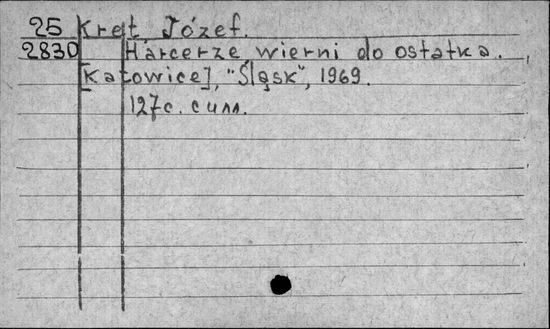 25 Kret, Józef.
2830 Harcerze wierni do ostatka.
[Katowice], "Śląsk", 1969.
127c. с илл.